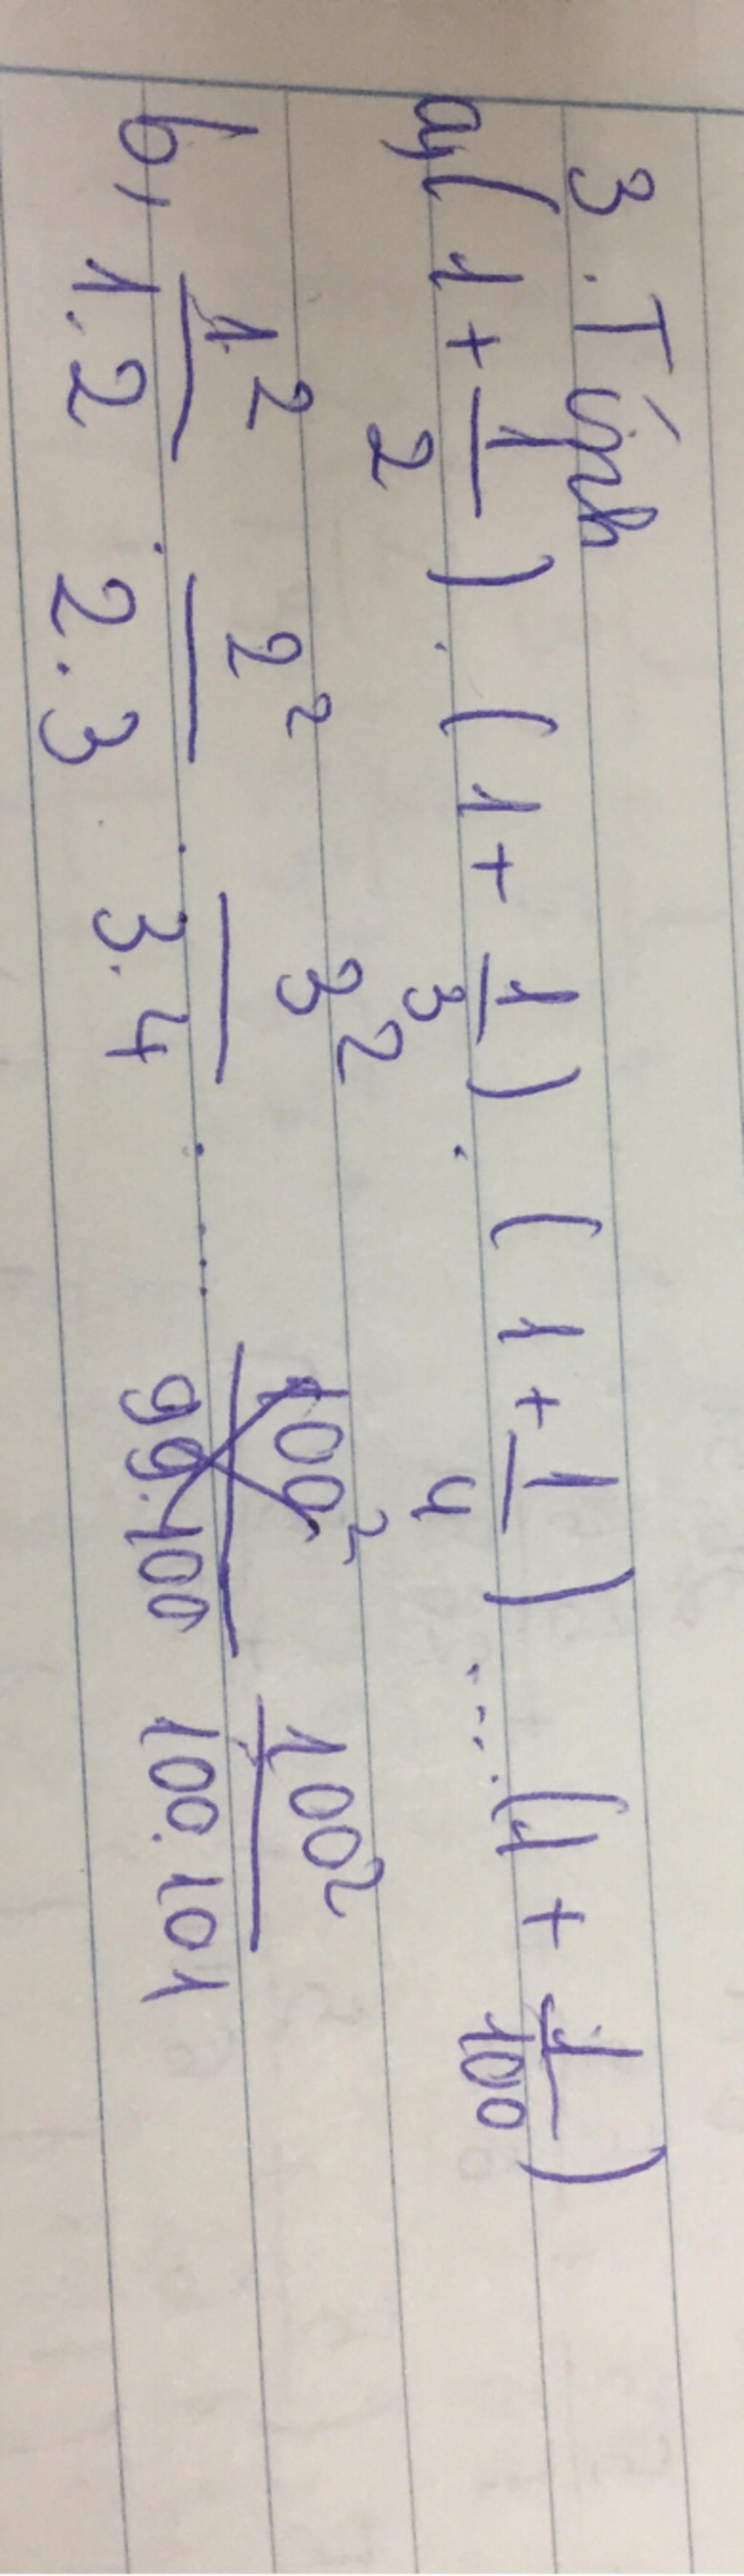 3. Tính
a, (1 + 1/2) . (1 + 1/3) . (1 + 1/4) .... (1 + 1/100)
b, 1²/1.2 . 2²/2.3 . 3²/3.4 . ... 100²/99.100 100²/100.101